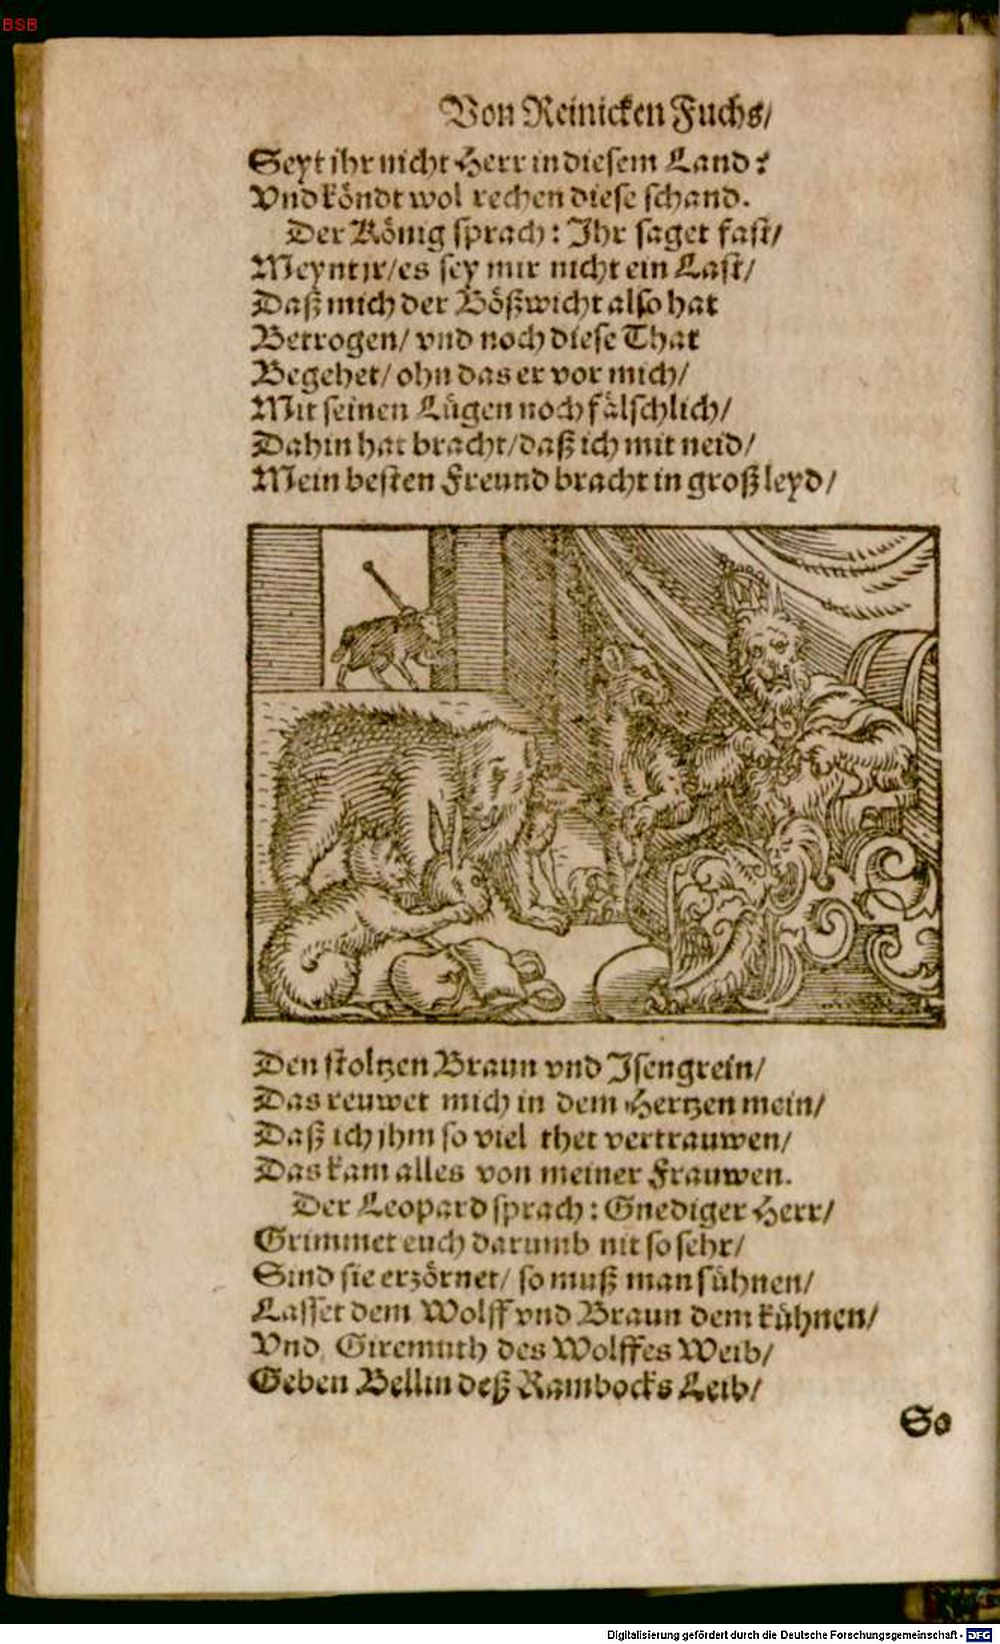 BSB
Von Reinicken Fuchs/
Seyt ihr nicht Herr in diesem Land?
Vnd köndt wol rechen diese schand.
Der König sprach: Ihr saget fast/
Meynt jr/ es sey mir nicht ein Last/
Daß mich der Bößwicht also hat
Betrogen/ vnd noch diese That
Begehet/ ohn das er vor mich/
Mit seinen Lügen noch fälschlich/
Dahin hat bracht/ daß ich mit neid/
Mein besten Freund bracht in groß leyd/
Den stoltzen Braun vnd Isengrein/
Das reuwet mich in dem Hertzen mein/
Daß ich ihm so viel thet vertrauwen/
Das kam alles von meiner Frauwen.
Der Leopard sprach: Gnediger Herr/
Grimmet euch darumb nit so sehr/
Sind sie erzörnet/ so muß man sühnen/
Lasset dem Wolff vnd Braun dem kühnen/
Vnd Giremuth des Wolffes Weib/
Geben Bellin deß Rambocks Leib/
So
Digitalisierung gefördert durch die Deutsche Forschungsgemeinschaft - DFG